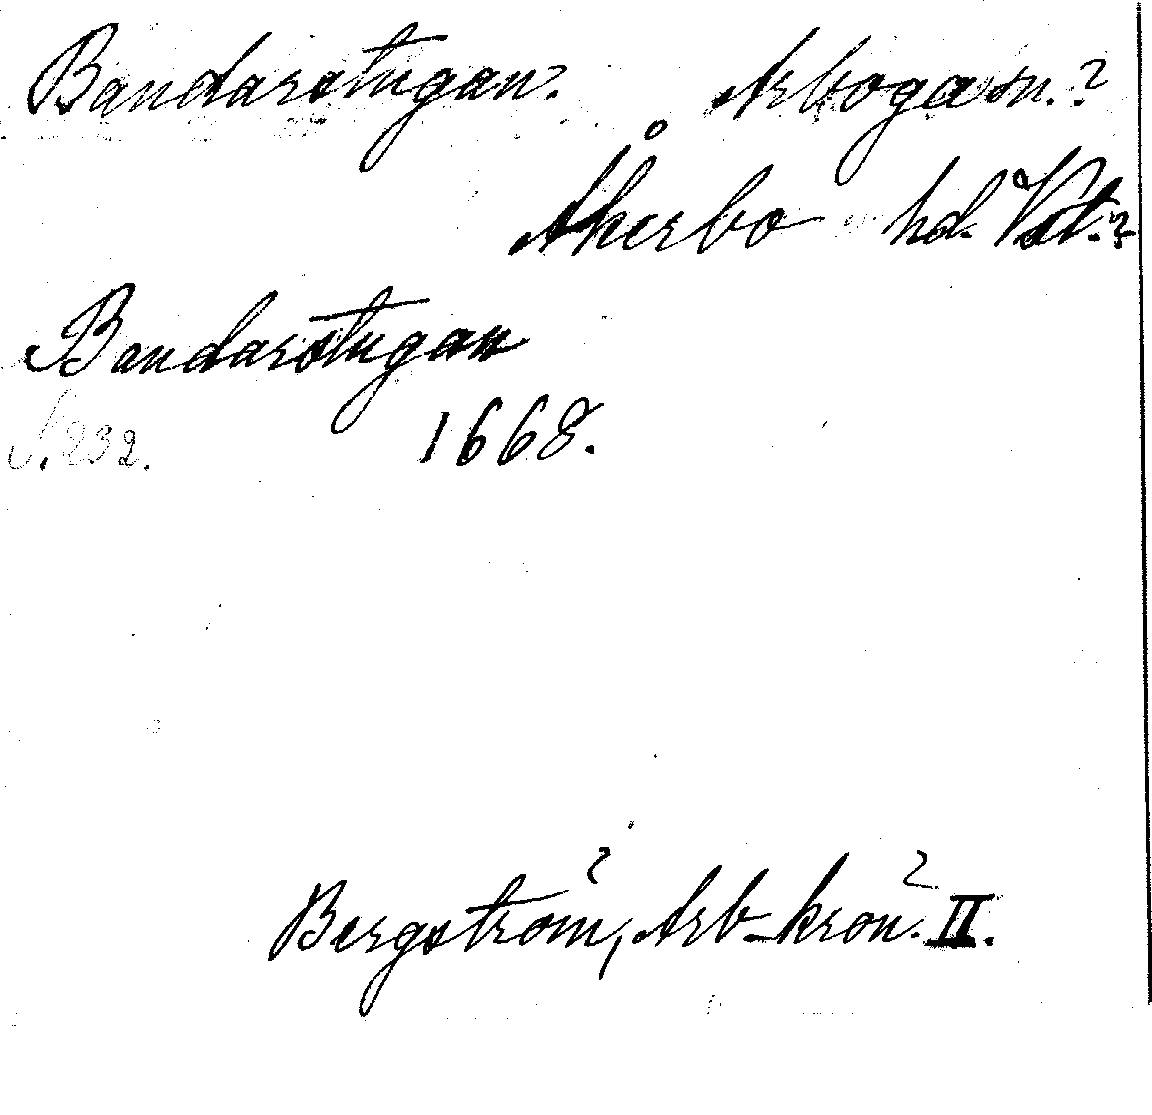 Bandarstugan. Arboga sn.?
Åkerbo hd. Vstl.?
Bandarstugan
S. 232. 1668.
Bergström, Arb. krön. II.